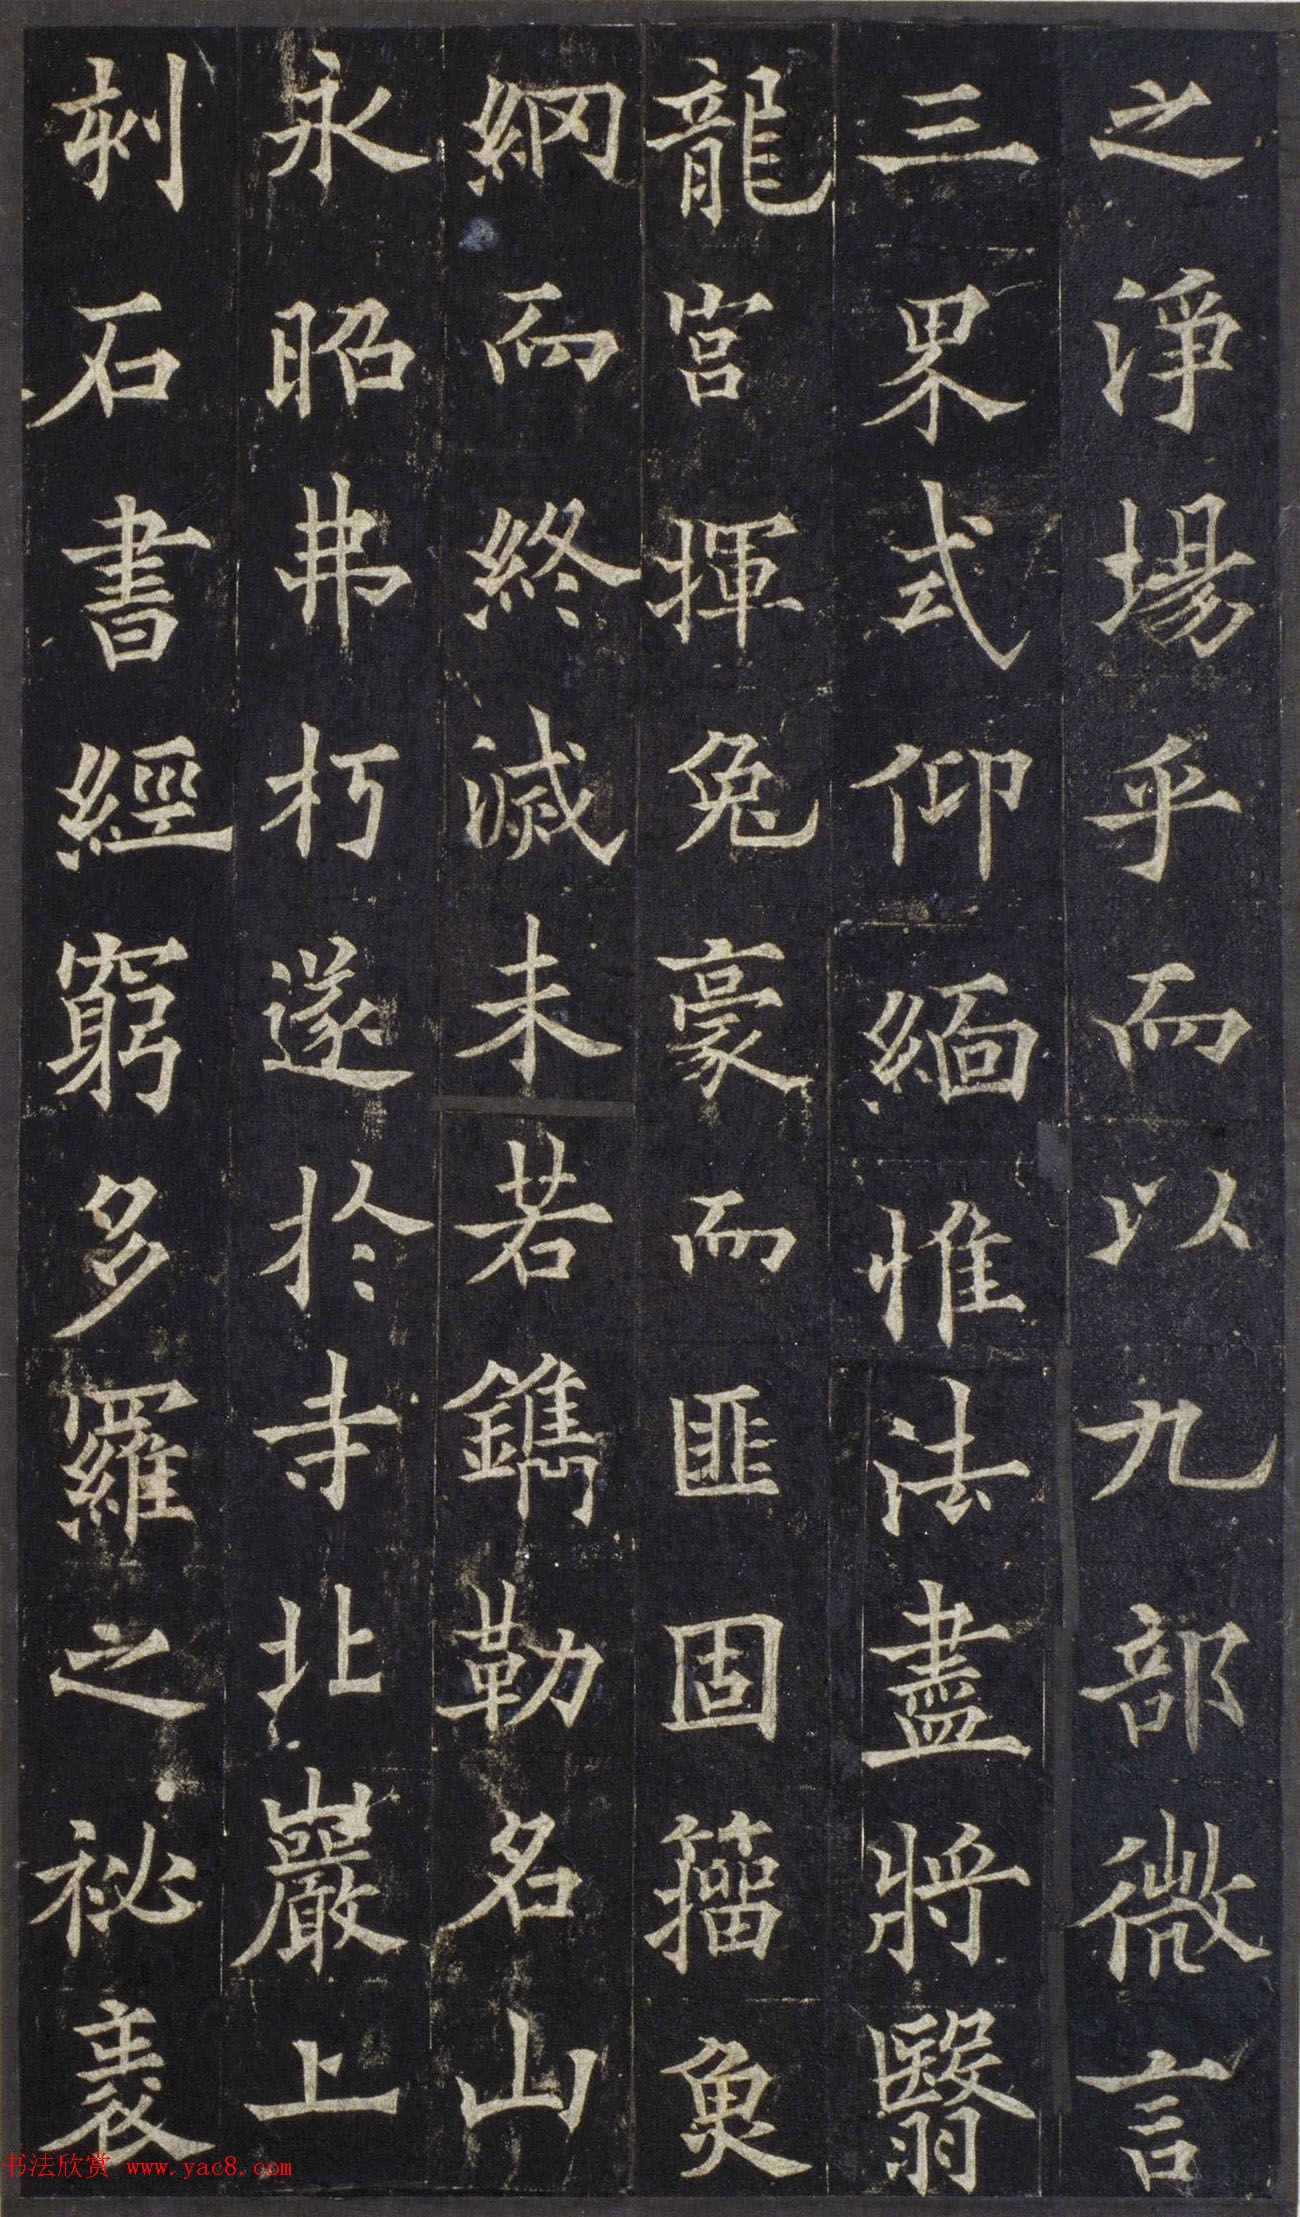 之淨場乎而以九部微言
三界式仰緬惟法盡將翳
龍宮揮兔豪而匪固籀魚
網而終滅未若鐫勒名山
永昭弗朽遂於寺北巖上
刻石書經窮多羅之祕裹
书法欣赏 www.yac8.com